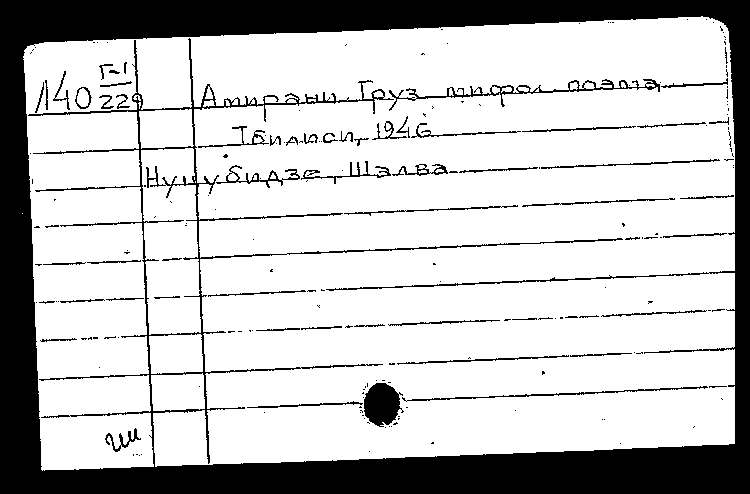 140 Г-1/229 Амирани Груз мифол поэма
Тбилиси, 1946
Нуцубидзе, Шалва